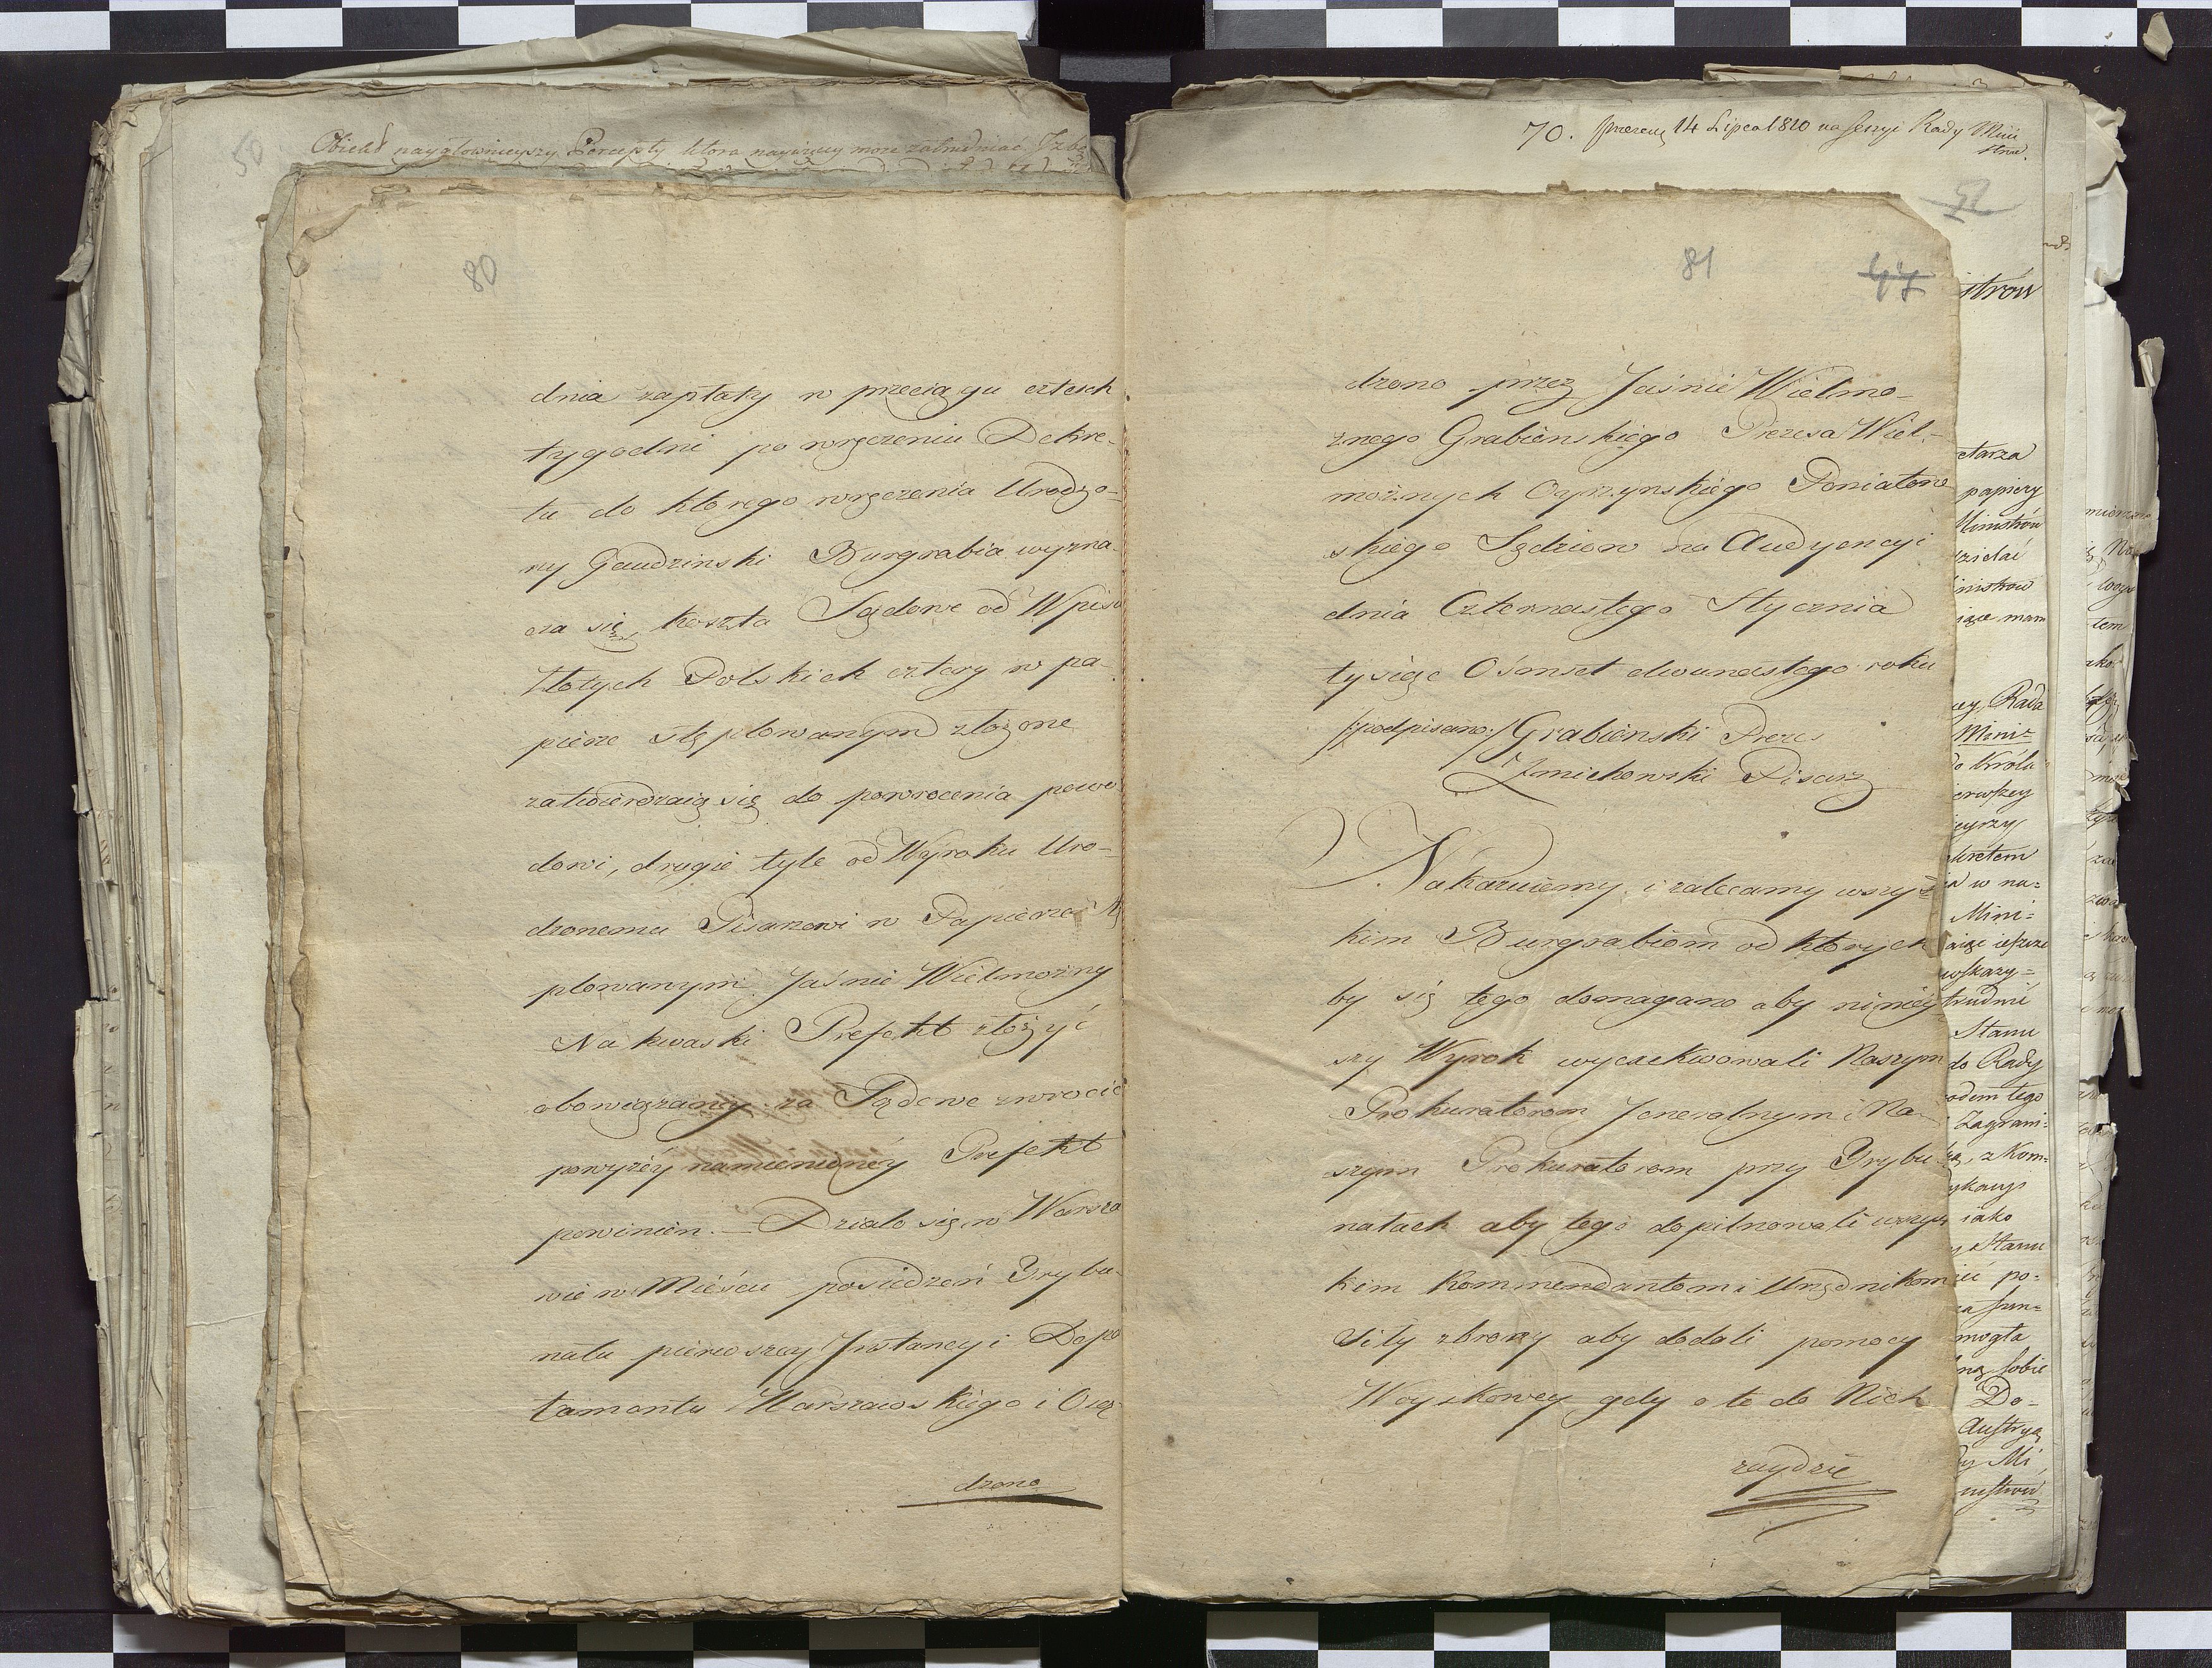 50
Obiekt naygłownieyszy Percepty ktora naywięcey może zatrudniać Izbę
80
dnia zapłaty w przeciągu czterech
tygodni po wręczeniu Dekre-
tu do ktorego wręczenia Urodzo-
ny Gaudzinski Burgrabia wyzna-
cza się, koszta Sądowe od Wpisu
Złotych Polskich cztery w pa-
pierze stęplowanym złożone
zatwierdzaią się do powrocenia powo
dowi, drugie tyle od Wyroku Uro-
dzonemu Pisarzowi w Papierze stę
plowanym Jaśnie Wielmożny
Nakwaski Prefekt złożyć
obowiązany za Sądowe zwrocić
powyżéy namienionéy Prefekt
powinien. — Działo się w Warsza
wie w Mieścu posiedzeń Trybu-
nału pierwszey Instancyi Depar
tamentu Warszawskiego i Osą-
dzono
70. prezent 14 Lipca 1810 na Sessyi Rady Mini
strów.
52
81
47
dzono przez Jaśnie Wielmo-
żnego Grabienskiego Prezesa Wiel-
możnych Oyrzynskiego Poniatow
skiego Sędziow na Audyencyi
dnia Czternastego Stycznia
tysiąc Osmset dwunastego roku
/:podpisano:/ Grabienski Prezes
Zmichowski Pisarz
Nakazuiemy i zalecamy wszyst
kim Burgrabiom od ktorych
by się tego domagano aby ninieÿ
szy Wyrok wyexekwowali Naszym
Prokuratorom Jeneralnym i Na-
szym Prokuratorom przy Trybu-
nałach aby tego dopilnowali wszyst
kim Kommendantom i Urzędnikom
Siły zbroyny aby dodali pomocy
Woyskowey gdy o to do Nich
zaydzie
strów
etarza
papiery
Ministrów
dzielać
inistrow
iące mam
ey, Rada
Mini=
do Króla
ierwszey
eyrzy
ekretem
w na=
Mini=
aiąc ieszcze
wskazy=
trudnie
Stanu
do Rady
odem tego
Zagrani=
z Kom=
iako
Stanu
ieć po=
mogła
sobie
Do=
Austryą
Mi
nistrow